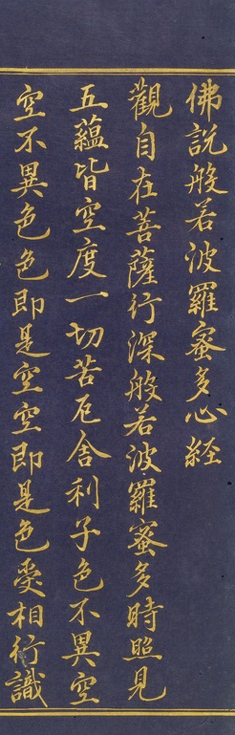 佛説般若波羅蜜多心経
觀自在菩薩行深般若波羅蜜多時照見
五蘊皆空度一切苦厄舍利子色不異空
空不異色色即是空空即是色受相行識